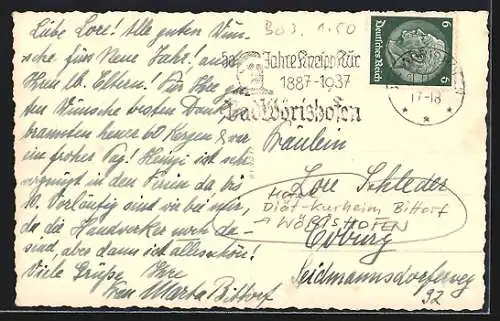 Liebe Lore! Alle guten Wün-
sche fürs Neue Jahr! auch
Ihren lb. Eltern! Für Ihre gu-
ten Wünsche besten Dank,
brannten heuer 60 Kerzen & war
ein froher Tag! Hengi ist sehr
vergnügt in den Ferien da bis
10. Vorläufig sind wir bei mir,
da die Handwerker noch da-
sind, aber dann ist alles schön!
Viele Grüße Ihre
Frau Marta Bittorf
Bo3. 1.50
50 Jahre Kneipp-Kur
1887-1937
Bad Wörishofen
6 6
Deutsches Reich
17-18
Fräulein
Lore Schleder
Hotel
Diät-Kurheim Bittorf
→ WÖRISHOFEN
Coburg
Seidmannsdorferweg
92